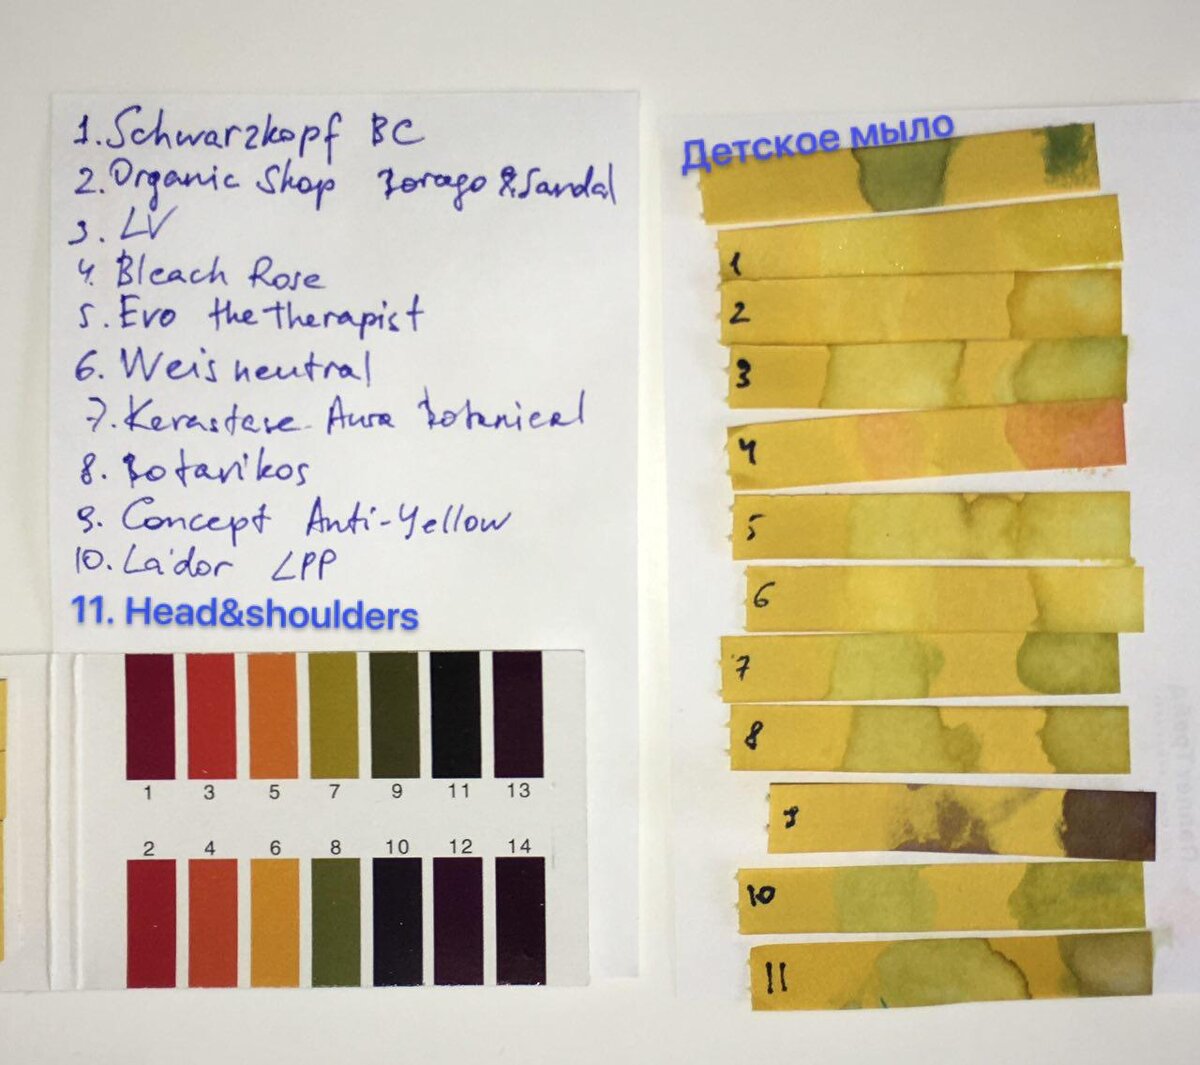 1. Schwarzkopf BC
2. Organic Shop &Sandal
3. LV
4. Bleach Rose
5. Evo the therapist
6. Weis neutral
7. Kerastase Aura Botanical
8. Botavikos
9. Concept Anti-Yellow
10. La'dor LPP
11. Head&shoulders
1 3 5 7 9 11 13
2 4 6 8 10 12 14
Детское мыло
1
2
3
4
5
6
7
8
9
10
11